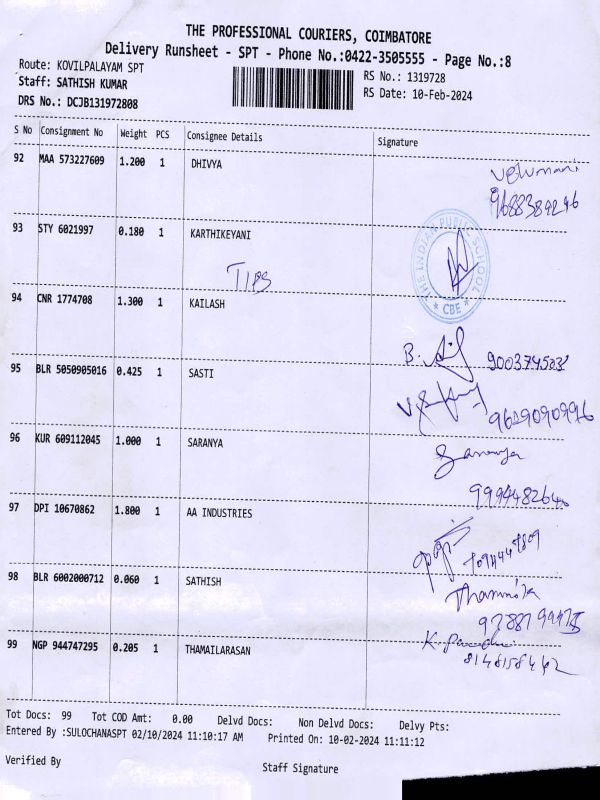 THE PROFESSIONAL COURIERS, COIMBATORE
Delivery Runsheet - SPT - Phone No.:0422-3505555 - Page No.:8
Route: KOVILPALAYAM SPT
RS No.: 1319728
Staff: SATHISH KUMAR
RS Date: 10-Feb-2024
DRS No.: DCJB131972808
S No Consignment No Weight PCS Consignee Details Signature
92 MAA 573227609 1.200 1 DHIVYA
Velumani
9688389246
93 STY 6021997 0.180 1 KARTHIKEYANI
THE INDIAN PUBLIC SCHOOL
★ CBE ★
TIPS
94 CNR 1774708 1.300 1 KAILASH
B.
95 BLR 5050905016 0.425 1 SASTI
96 KUR 609112045 1.000 1 SARANYA
Saranya
97 DPI 10670862 1.800 1 AA INDUSTRIES
98 BLR 6002000712 0.060 1 SATHISH
99 NGP 944747295 0.205 1 THAMAILARASAN
K
Tot Docs: 99 Tot COD Amt: 0.00 Delvd Docs: Non Delvd Docs: Delvy Pts:
Entered By :SULOCHANASPT 02/10/2024 11:10:17 AM Printed On: 10-02-2024 11:11:12
Verified By
Staff Signature